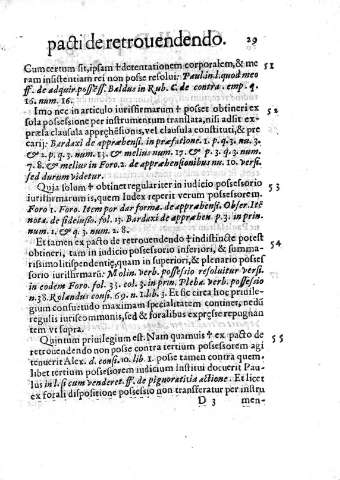 pacti de retrouendendo. 29
Cum certum sit, ipsam † detentationem corporalem, & me 51
ram insistentiam rei non posse resolui. Paul. in l. quod meo
ff. de adquir. possess. Baldus in Rub. C. de contra. emp. q.
16. num. 16.
Imo nec in articulo iurisfirmarum † posset obtineri ex 52
sola possessione per instrumentum translata, nisi adsit ex-
præssa clausula apprehẽsionis, vel clausula constituti, & pre
carij. Bardaxi de appræhensi. in præfatione. 1. p. q. 3. nu. 3.
& 2. p. q. 3. num. 13. & melius num. 17. & p. 3. q. 3. num.
8. & melius in Foro. 2. de appræhensionibus nu. 10. versi.
sed durum videtur.
Quia solum † obtinet regulariter in iudicio possessorio 53
iurisfirmarum is, quem Iudex reperit verum possessorem.
Foro 1. Foro. Item por dar forma. de appræhensi. Obser. Ite
nota. de fideiusso. fol. 13. Bardaxi de appræhen. p. 3. in prin.
num. 1. & q. 3. num. 2. 8.
Et tamen ex pacto de retrouendendo † indistincte potest 54
obtineri, tam in iudicio possessorio inferiori, & summa-
rissimo litispendentię, quam in superiori, & plenario posses
sorio iurisfirmarũ: Molin. verb. possessio resoluitur versi.
in eodem Foro. fol. 33. col. 3. in prin. Plebæ. verb. possessio
n. 38. Rolandus consi. 69. n. 1. lib. 3. Et sic circa hoc priuile-
gium consuetudo maximam specialitatem continet, nedũ
regulis iuris communis, sed & foralibus expręsse repugnan
tem vt supra.
Quintum priuilegium est. Nam quamuis † ex pacto de 55
retrouendendo non posse contra tertium possessorem agi
tenuerit Alex. d. consi. 10. lib. 1. posse tamen contra quem-
libet tertium possessorem iudicium Institui docuerit Pau-
lus in l. si cum venderet. ff. de pigneratitia actione. Et licet
ex forali dispositione possessio non transferatur per instru
D 3 men-